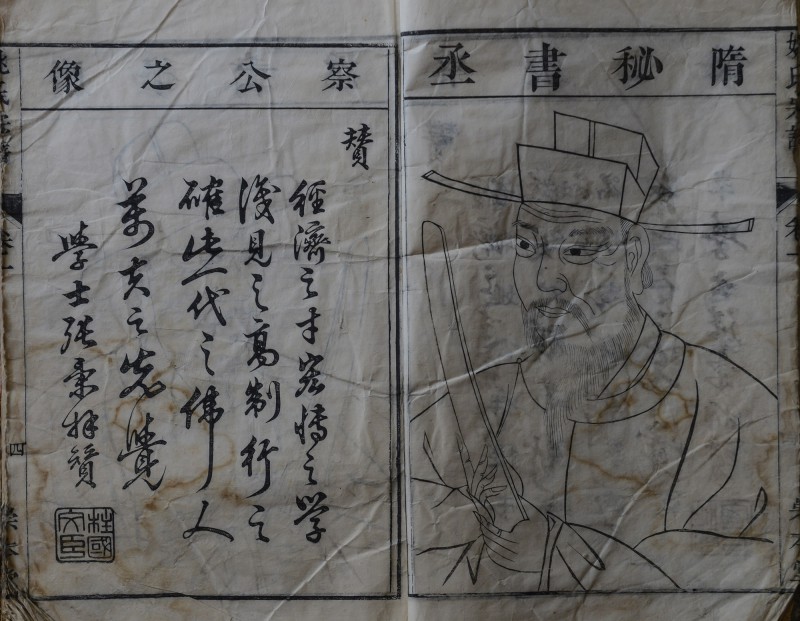 隋秘書丞
察公之像
贊
經濟之才宏博之学
淺見之高制行之
確生一代之偉人
萬古之先覺
學士張秉拜贊
柱國
文臣
四